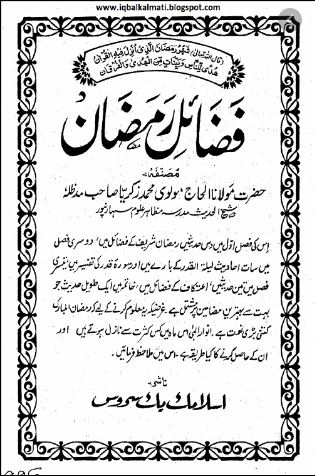 www.iqbalkalmati.blogspot.com
قال اللہ تعالیٰ: شَهْرُ رَمَضَانَ الَّذِیْ اُنْزِلَ فِیْهِ الْقُرْآنُ
هُدًی لِّلنَّاسِ وَبَیِّنَاتٍ مِّنَ الْهُدٰی وَالْفُرْقَانِ
فضائلِ رمضان
مصنفہ
حضرت مولانا الحاج مولوی محمد زکریا صاحب مدظلہٗ
شیخ الحدیث مدرسہ مظاہر علوم سہارنپور
اس کی فصل اول میں دس حدیثیں رمضان شریف کے فضائل میں، دوسری فصل
میں سات احادیث لیلۃ القدر کے بارے میں اور سورہ قدر کی تفسیر ہیں، تیسری
فصل میں تین حدیثیں، اعتکاف کے فضائل میں، خاتمہ میں ایک طویل حدیث جو
بہت سے بہترین مضامین پر مشتمل ہے۔ غرضیکہ یہ معلوم کرنے کے لئے کہ رمضان المبارک
کتنی بڑی نعمت ہے، انوار الٰہی اس ماہ میں کس کثرت سے نازل ہوتے ہیں اور
ان کے حاصل کرنے کا کیا طریقہ ہے۔ اس میں ملاحظہ فرمائیں۔
ناشر
اسلامک بک سروس